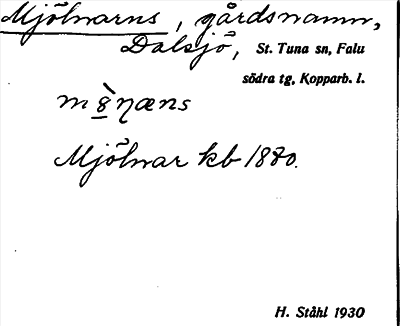 Mjölnarns, gårdsnamn,
Dalsjö, St. Tuna sn, Falu
södra tg, Kopparb. l.
m8̀ɳæns
Mjölnar kb 1880.
H. Ståhl 1930